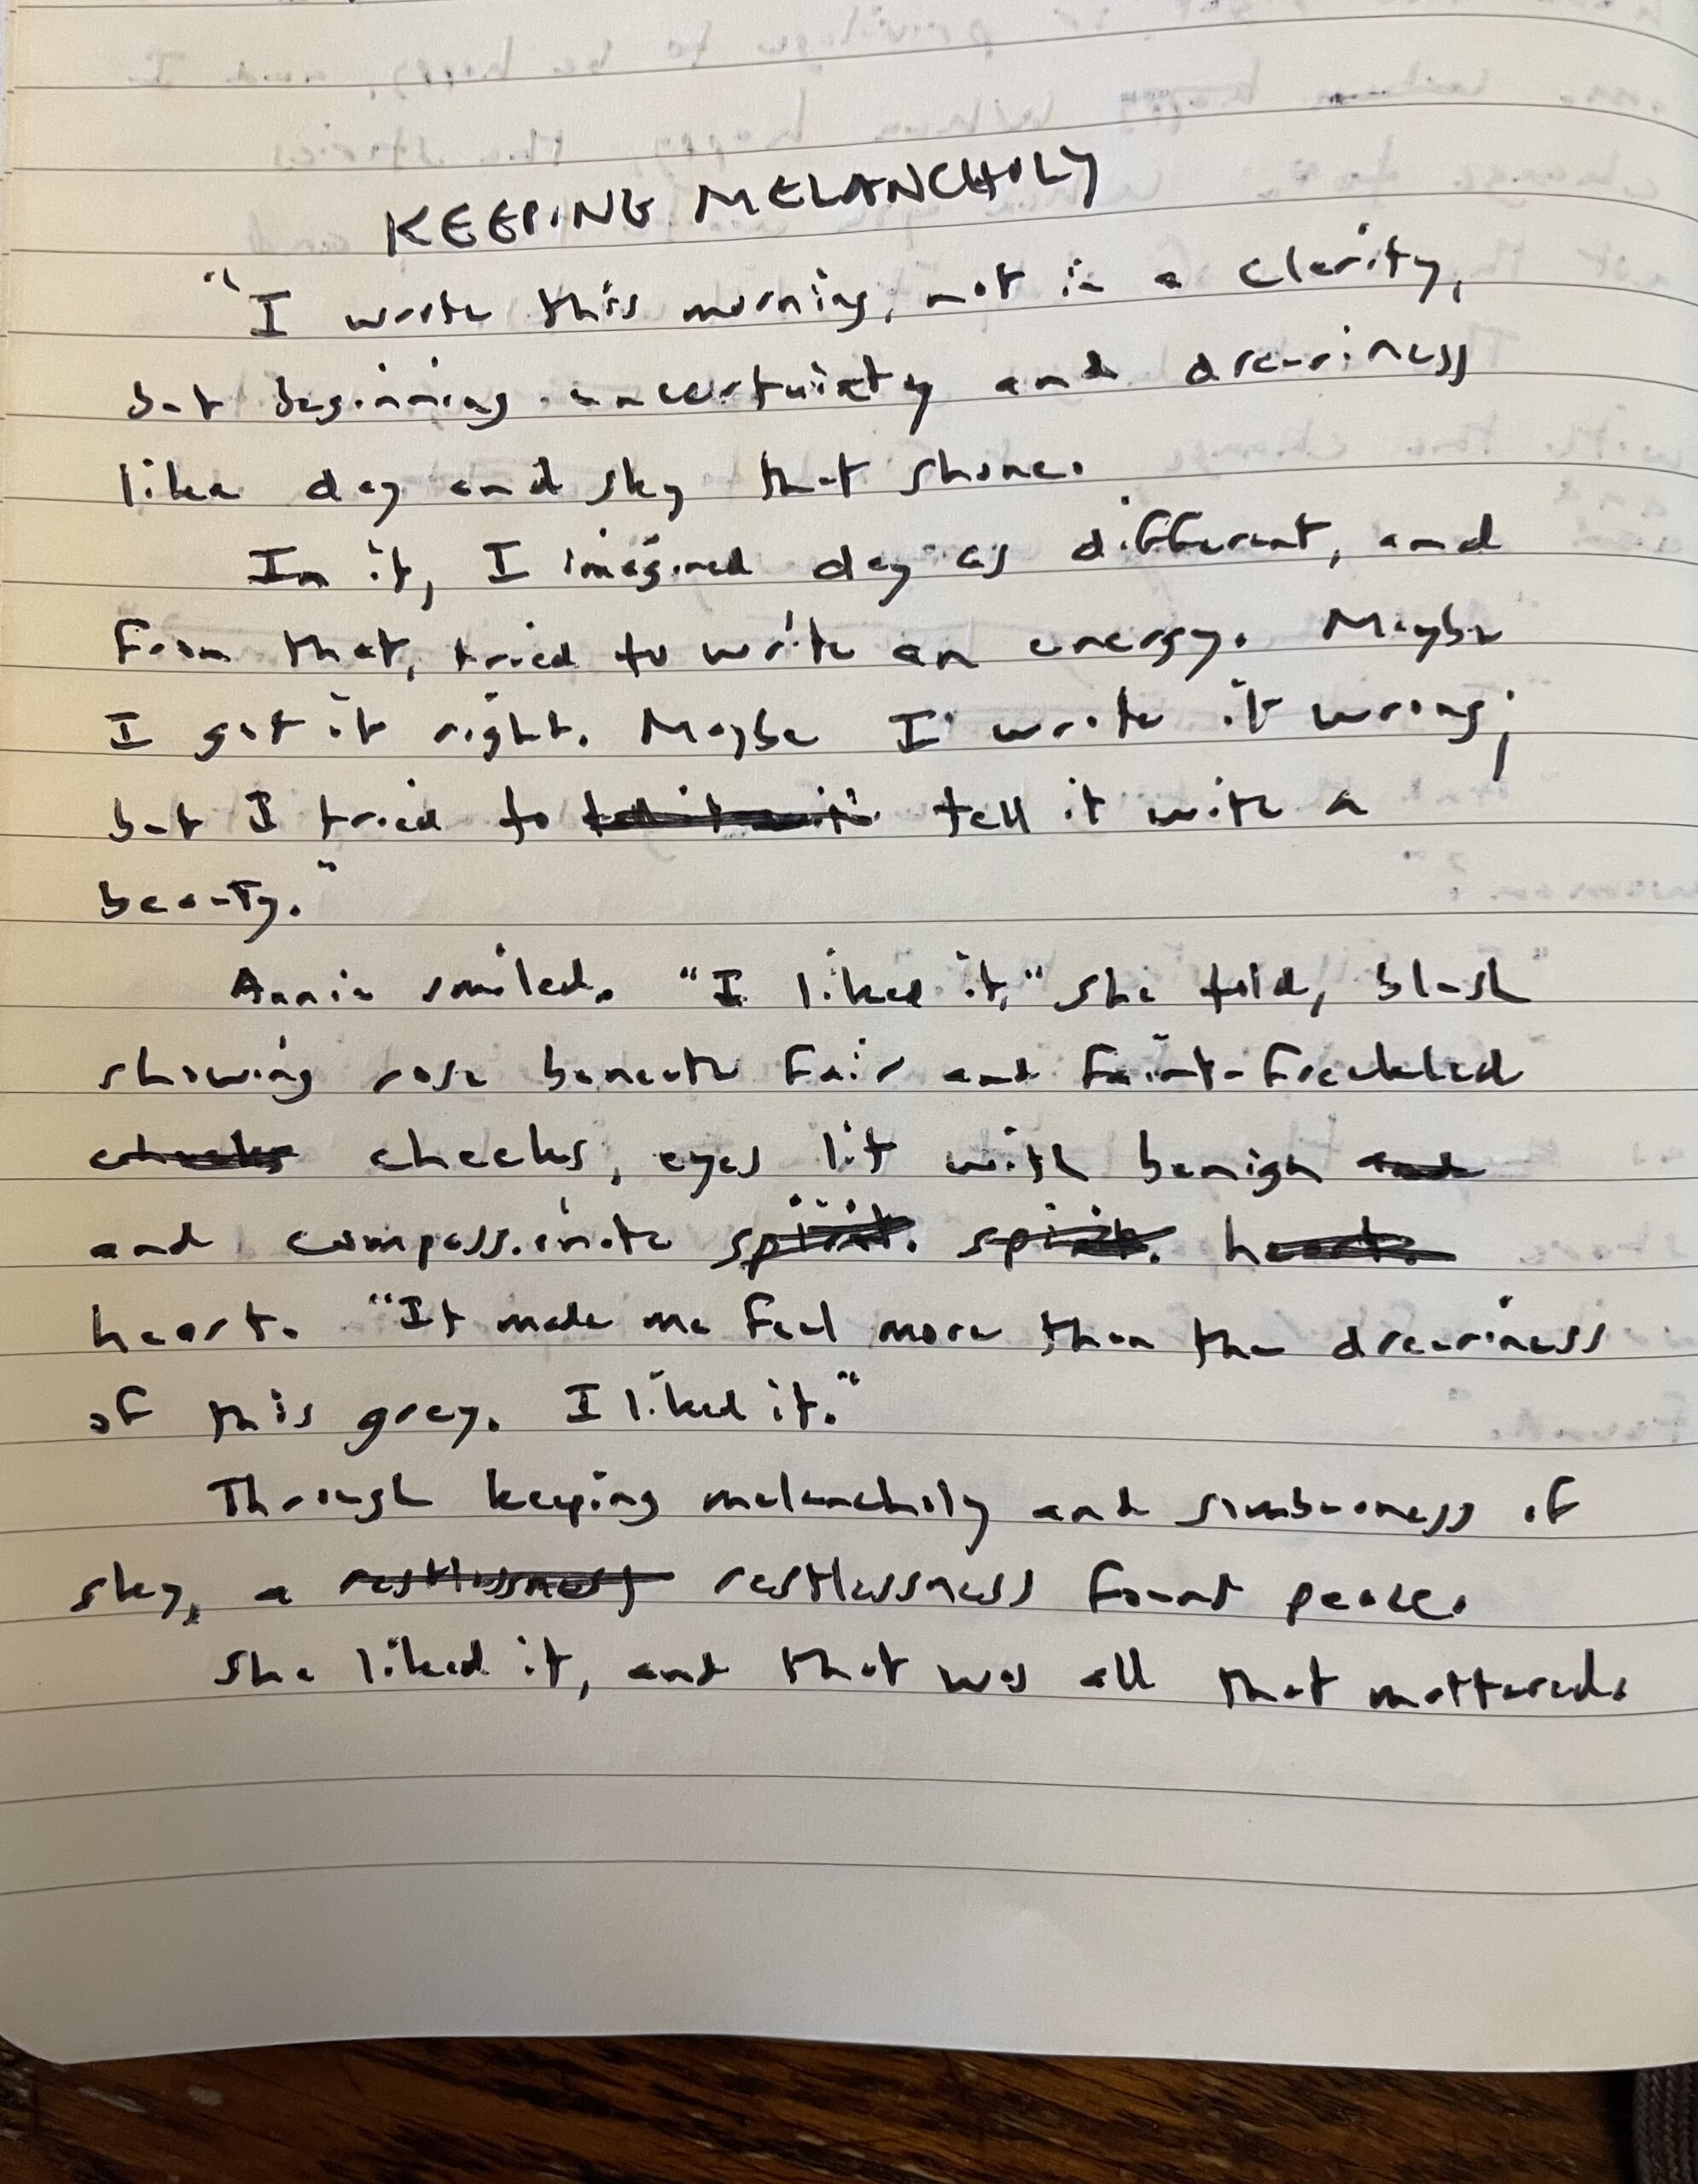 KEEPING MELANCHOLY
"I wrote this morning, not in a clarity,
but beginning uncertainty and dreariness
like day and sky that shone.
In it, I imagined day as different, and
from that, tried to write an energy. Maybe
I got it right. Maybe I wrote it wrong;
but I tried to tell it with a
beauty."
Annie smiled. "I liked it," she told, blush
showing rose beneath fair and faint-freckled
cheeks cheeks, eyes lit with benign and
and compassionate spirit. spirit. heart.
heart. "It made me feel more than the dreariness
of this grey. I liked it."
Through keeping melancholy and somberness of
sky, a restlessness restlessness found peace.
She liked it, and that was all that mattered.